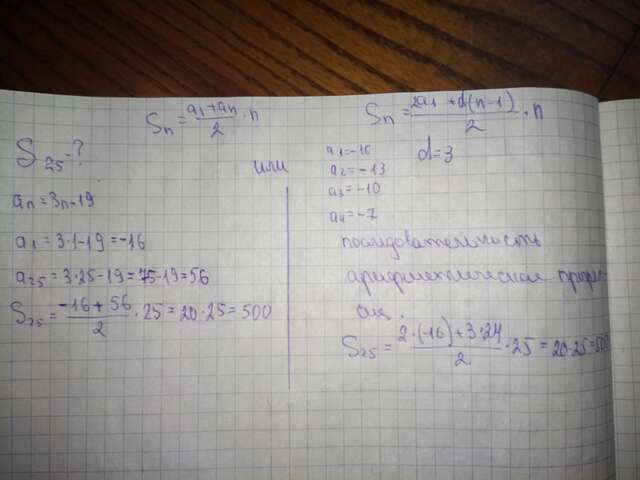 Sₙ = (a₁ + aₙ)/2 · n
S₂₅ - ?
aₙ = 3n - 19
a₁ = 3·1 - 19 = -16
a₂₅ = 3·25 - 19 = 75 - 19 = 56
S₂₅ = (-16 + 56)/2 · 25 = 20·25 = 500
или
Sₙ = (2a₁ + d(n-1))/2 · n
a₁ = -16
a₂ = -13
a₃ = -10
a₄ = -7
d = 3
последовательность
арифметическая
S₂₅ = (2·(-16) + 3·24)/2 · 25 = 20·25 = 500